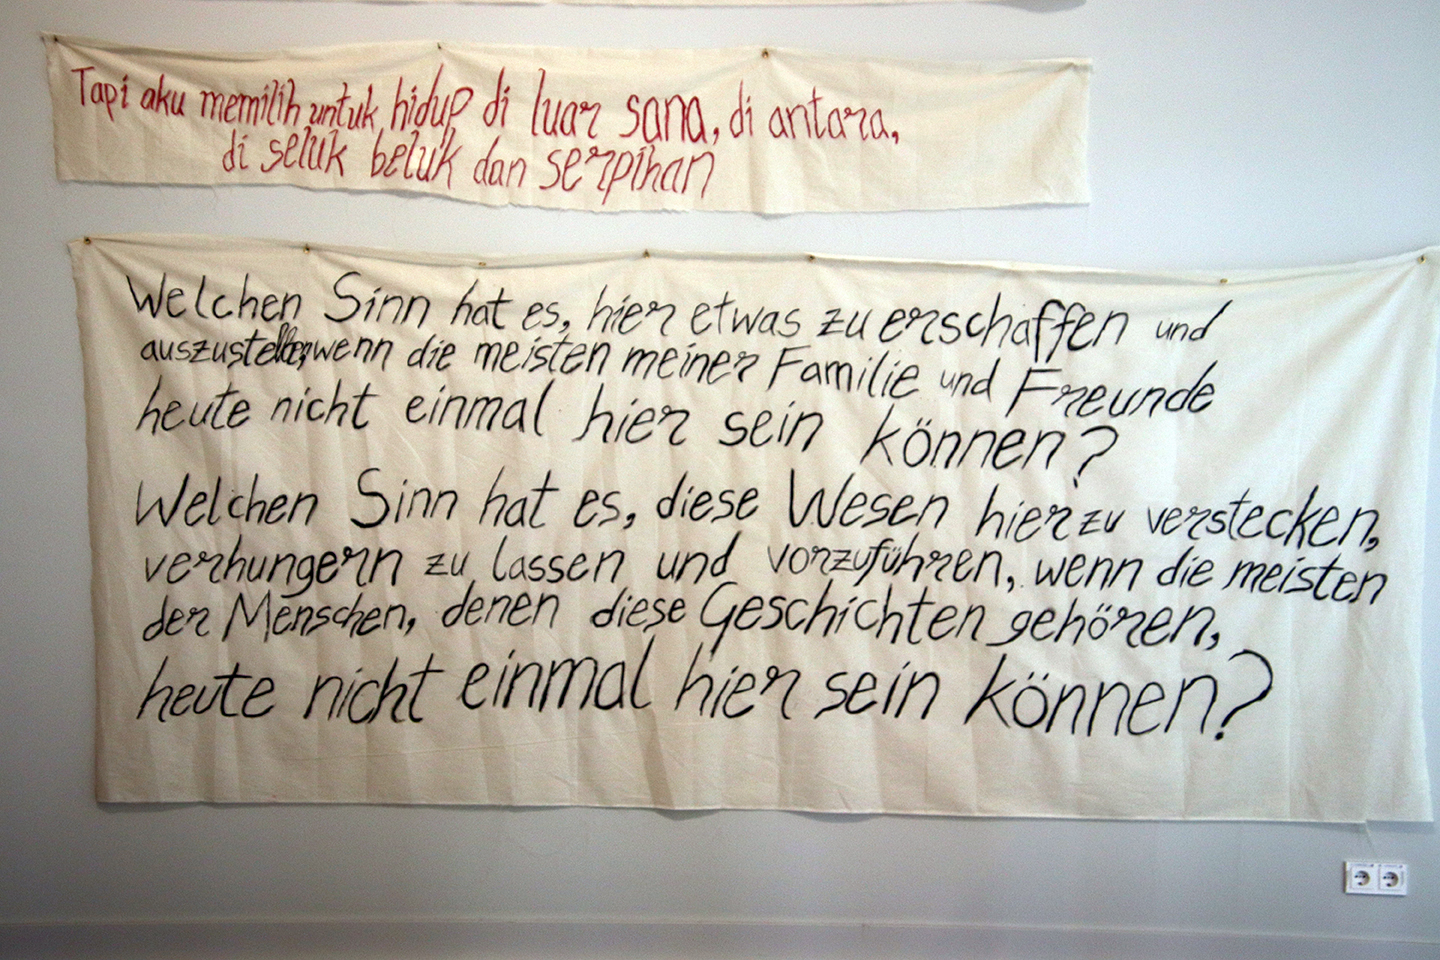 Tapi aku memilih untuk hidup di luar sana, di antara,
di seluk beluk dan serpihan
Welchen Sinn hat es, hier etwas zu erschaffen und
auszustellen, wenn die meisten meiner Familie und Freunde
heute nicht einmal hier sein können?
Welchen Sinn hat es, diese Wesen hier zu verstecken,
verhungern zu lassen und vorzuführen, wenn die meisten
der Menschen, denen diese Geschichten gehören,
heute nicht einmal hier sein können?